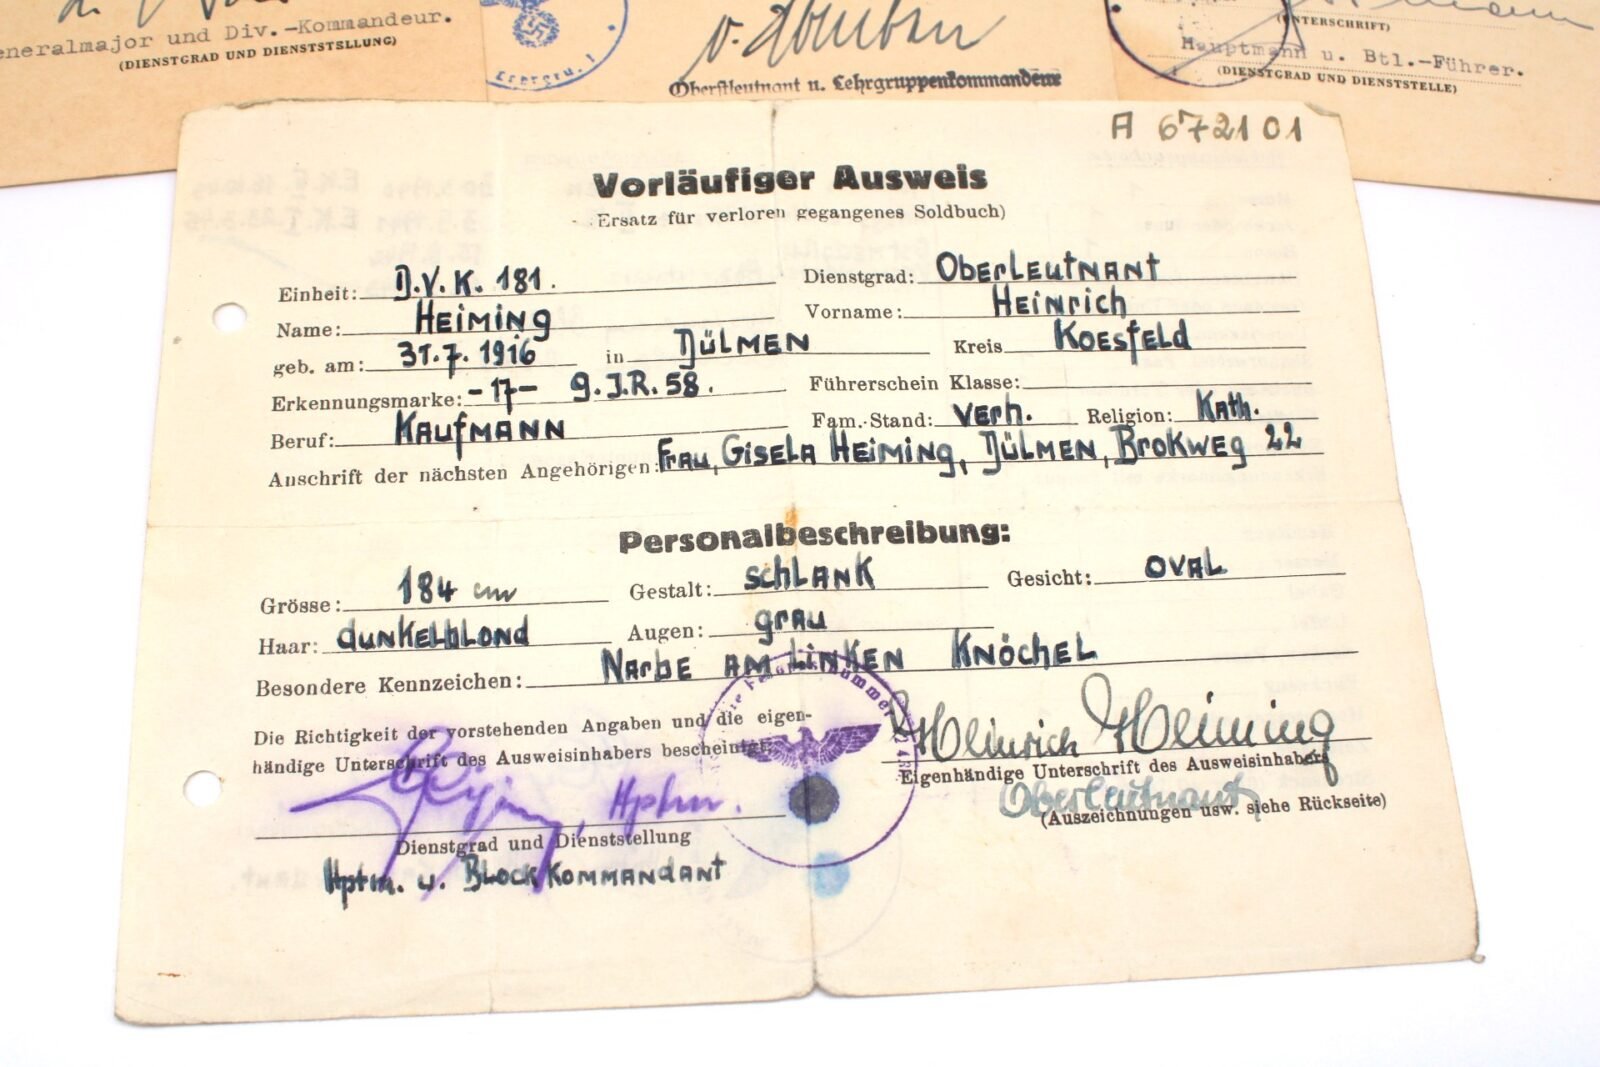 Generalmajor und Div.-Kommandeur.
(DIENSTGRAD UND DIENSTSTELLUNG)
Oberstleutnant u. Lehrgruppenkommandeur
(UNTERSCHRIFT)
Hauptmann u. Btl.-Führer.
(DIENSTGRAD UND DIENSTSTELLE)
A 672101
Vorläufiger Ausweis
(Ersatz für verloren gegangenes Soldbuch)
Einheit: D.V.K. 181. Dienstgrad: Oberleutnant
Name: Heiming Vorname: Heinrich
geb. am: 31.7.1916 in Dülmen Kreis Koesfeld
Erkennungsmarke: -17- 9.J.R.58. Führerschein Klasse:
Beruf: Kaufmann Fam.-Stand: verh. Religion: Kath.
Anschrift der nächsten Angehörigen: Frau, Gisela Heiming, Dülmen, Brokweg 22
Personalbeschreibung:
Grösse: 184 cm Gestalt: schlank Gesicht: oval
Haar: dunkelblond Augen: grau
Besondere Kennzeichen: Narbe am linken Knöchel
Die Richtigkeit der vorstehenden Angaben und die eigen-
händige Unterschrift des Ausweisinhabers bescheinigt:
Hptm.
Dienstgrad und Dienststellung
Hptm. u. Blockkommandant
Heinrich Heiming
Eigenhändige Unterschrift des Ausweisinhabers
Oberleutnant
(Auszeichnungen usw. siehe Rückseite)